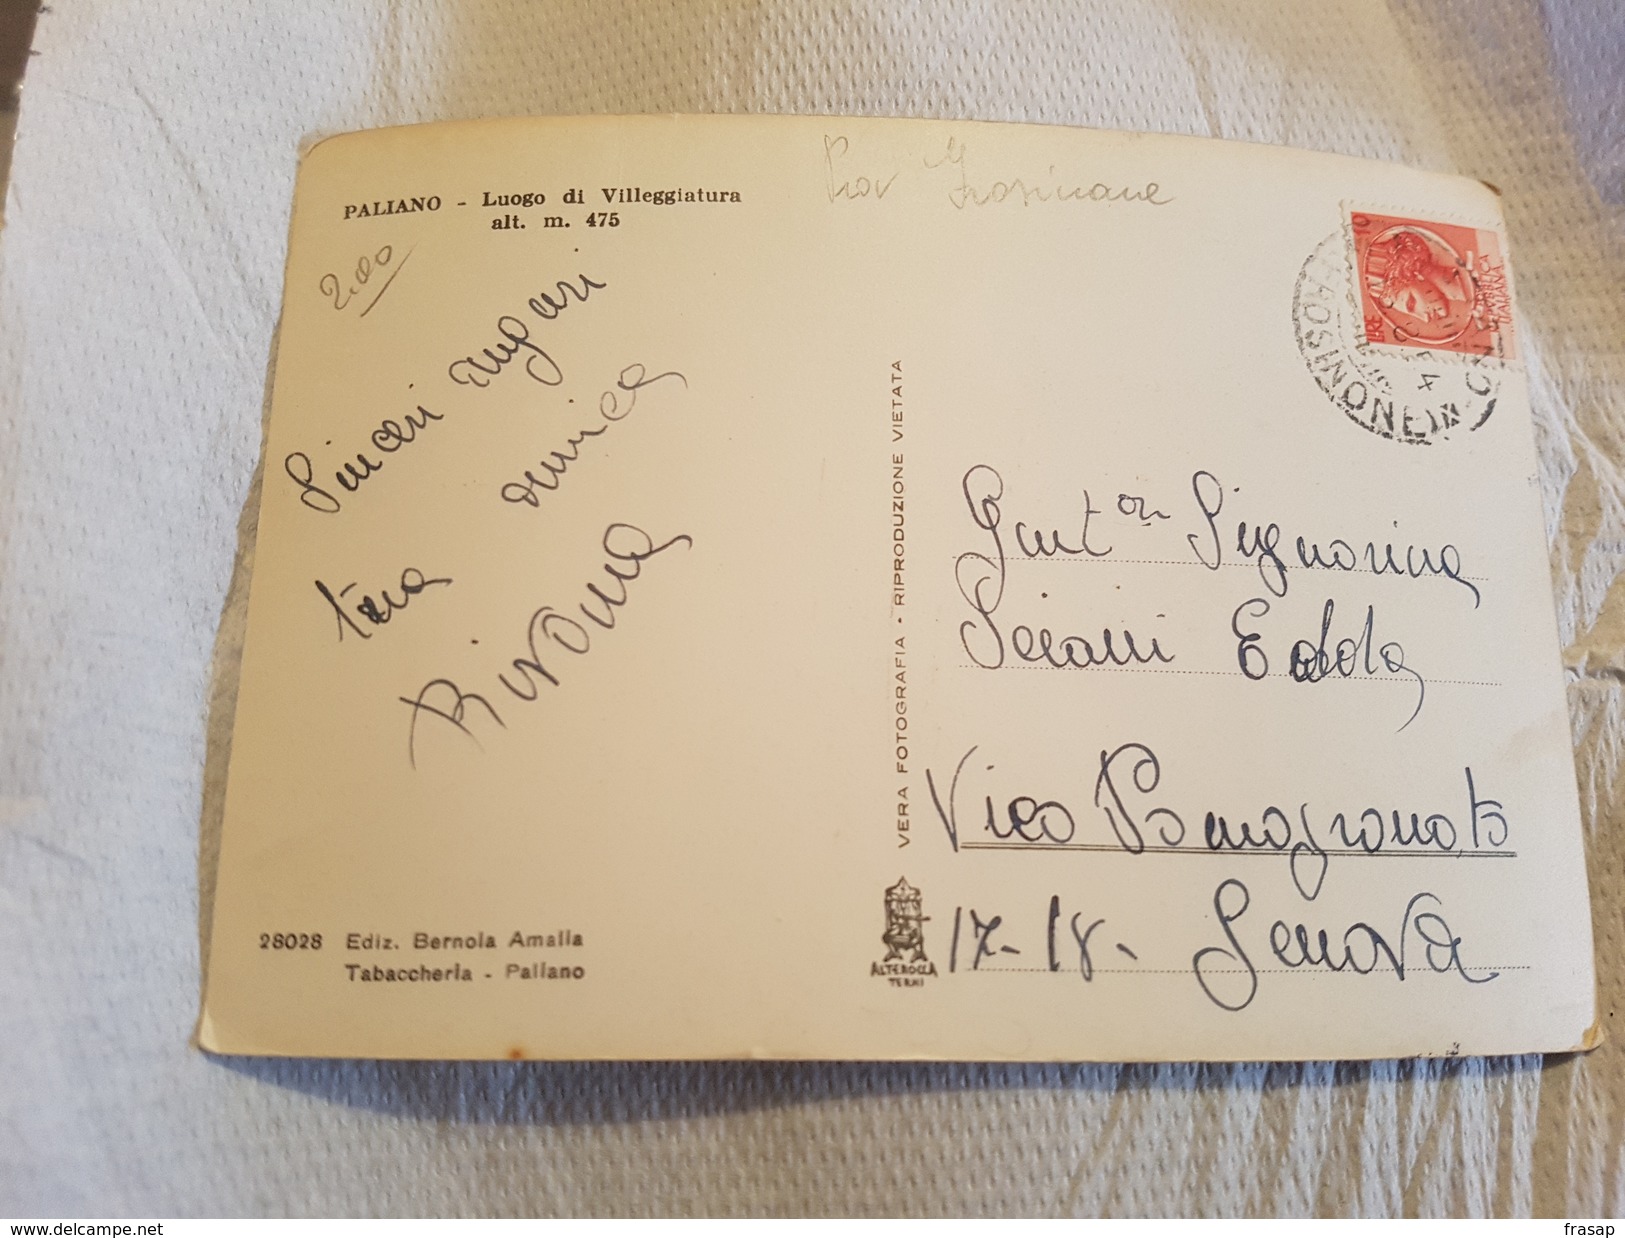 PALIANO - Luogo di Villeggiatura
alt. m. 475
Prov Frosinone
2.00
Sinceri Auguri
tua amica
LIRE 10
REPUBBLICA
ITALIANA
VERA FOTOGRAFIA • RIPRODUZIONE VIETATA
Gent Signorina
Edda
Vico Pomogranato
17-18- Genova
28028 Ediz. Bernola Amalia
Tabaccheria - Paliano
ALTEROCCA
TERNI
www.delcampe.net
frasap